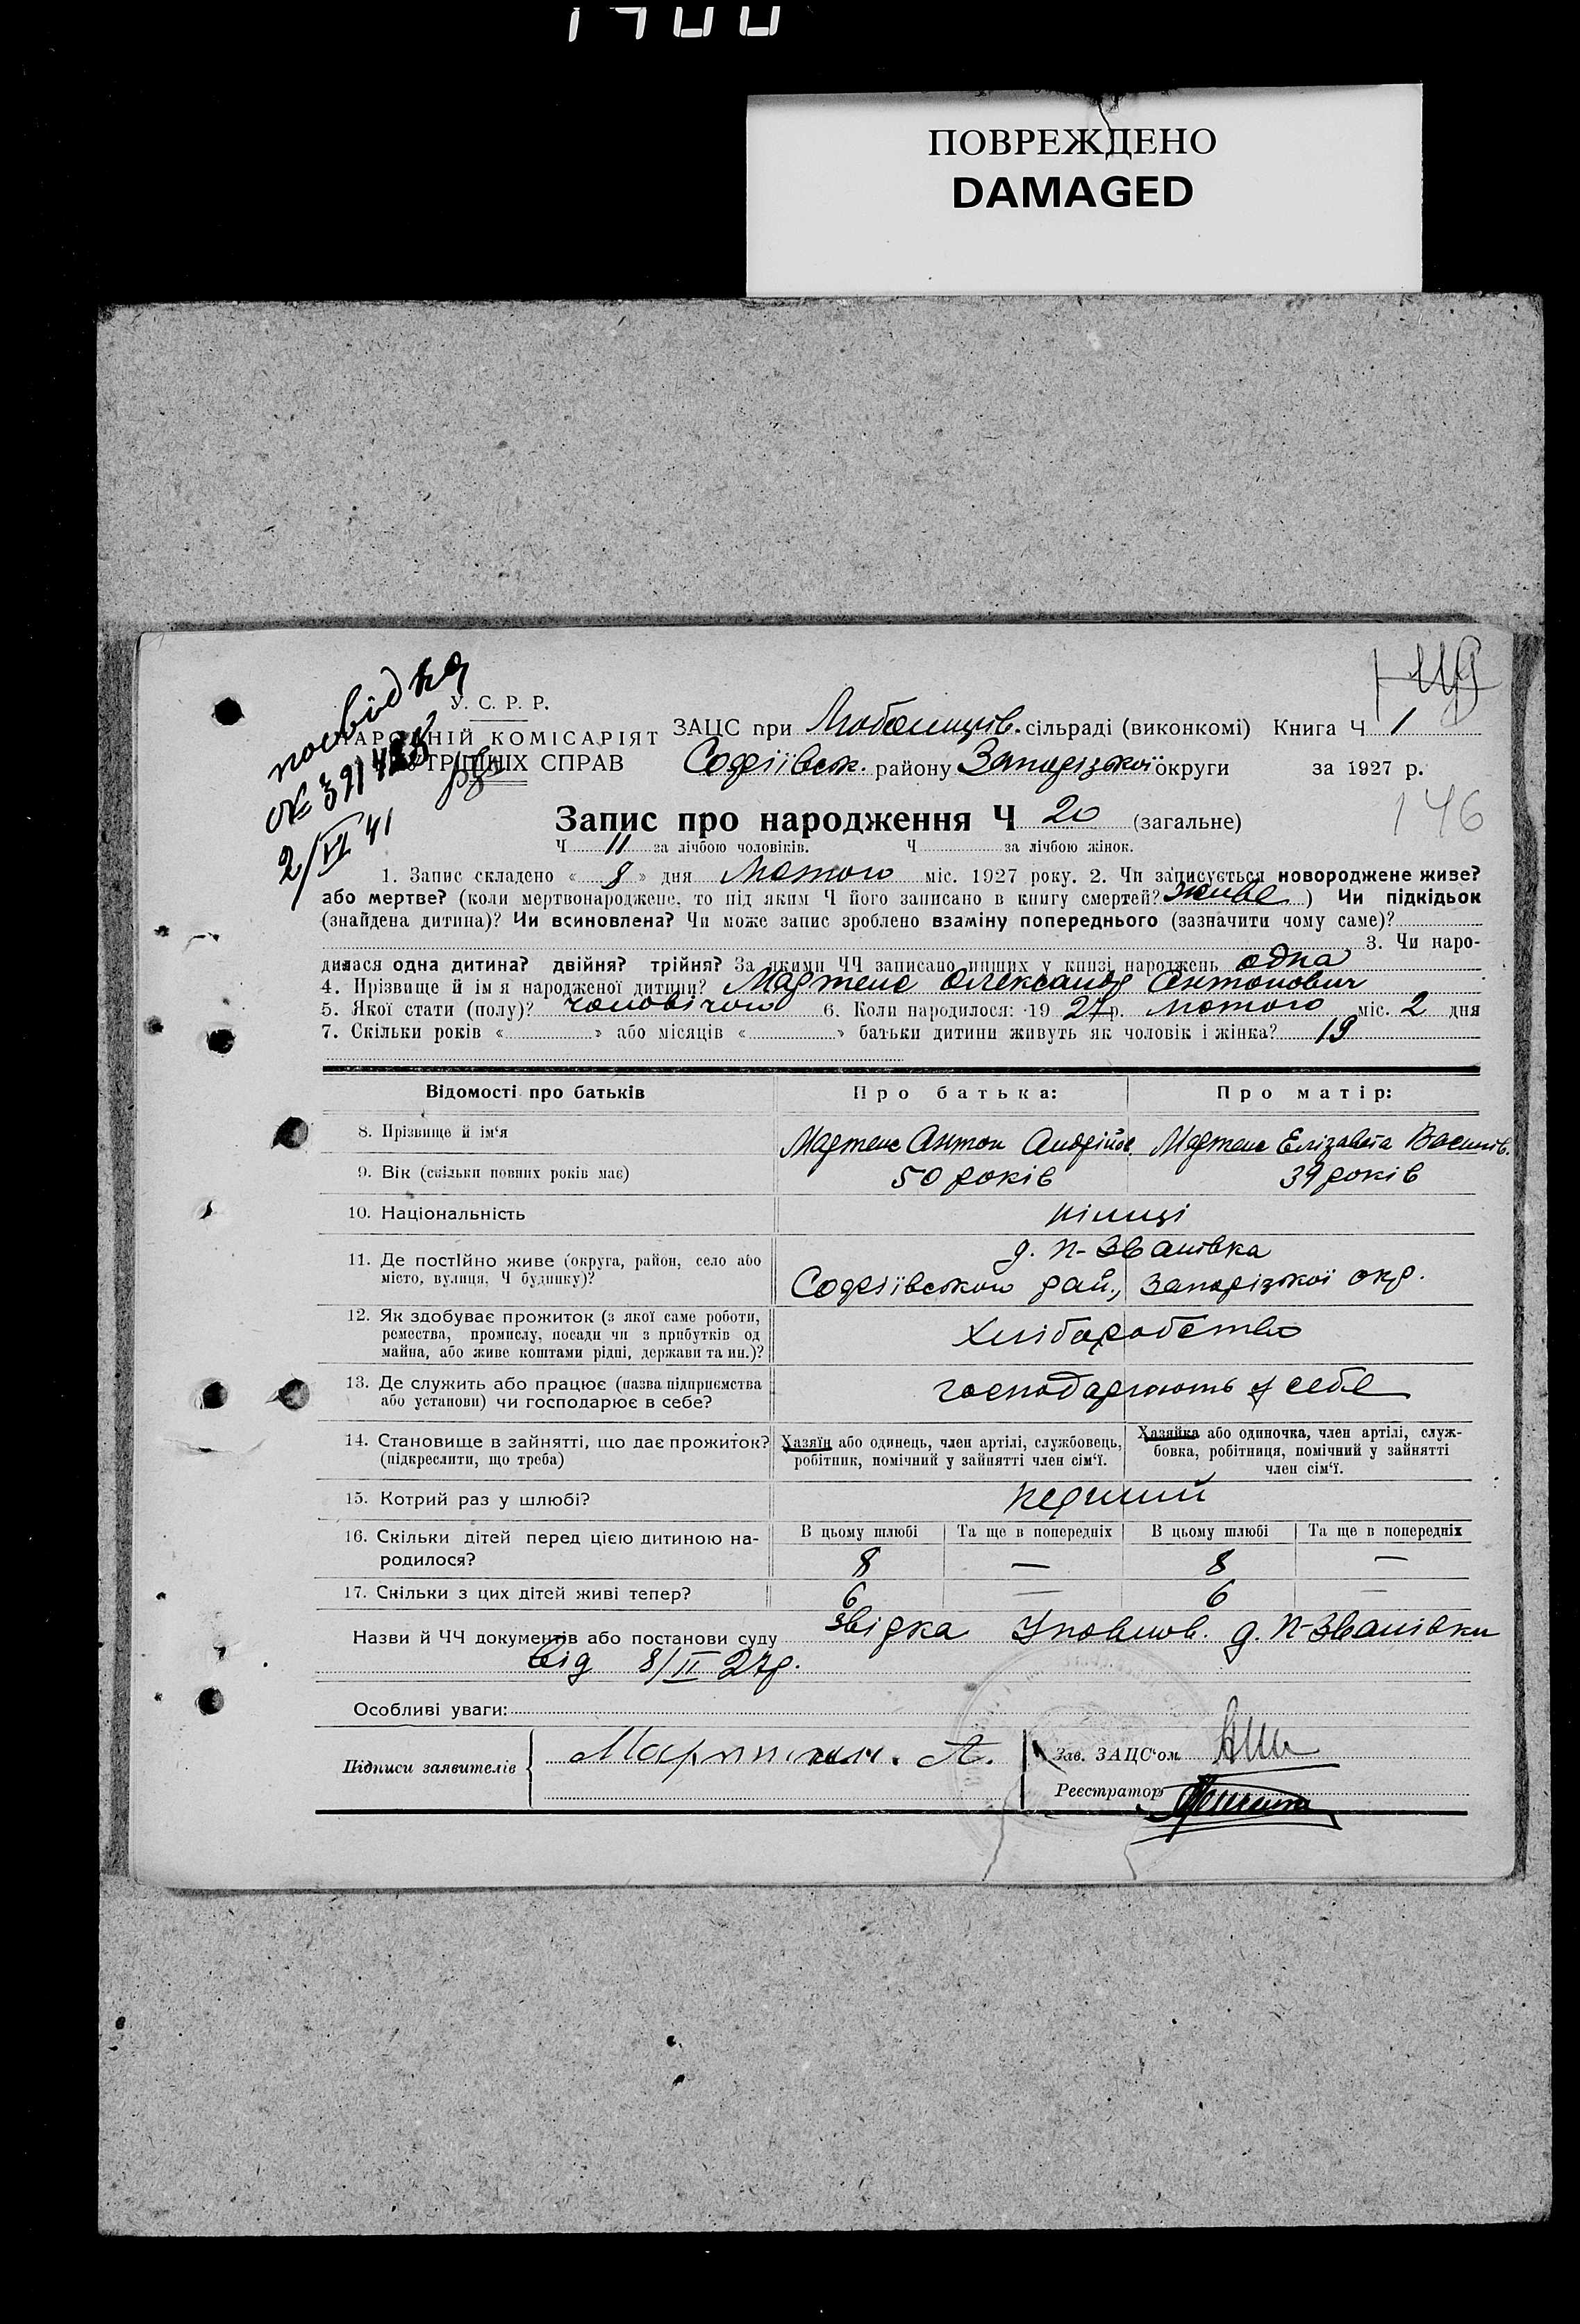 ПОВРЕЖДЕНО
DAMAGED
посвідка
У. С. Р. Р.
НАРОДНІЙ КОМІСАРІЯТ
ВНУТРІШНІХ СПРАВ
№ 391
2/VI 41
ЗАЦС при сільраді (виконкомі) Книга Ч 1
Софіївськ. району Запорізької округи за 1927 р.
Запис про народження Ч 20 (загальне)
146
Ч 11 за лічбою чоловіків. Ч за лічбою жінок.
1. Запис складено « 8 » дня Лютого міс. 1927 року. 2. Чи записується новороджене живе?
або мертве? (коли мертвонароджене, то під яким Ч його записано в книгу смертей? живе ) Чи підкідьок
(знайдена дитина)? Чи всиновлена? Чи може запис зроблено взаміну попереднього (зазначити чому саме)?
3. Чи наро-
дилася одна дитина? двійня? трійня? За якими ЧЧ записано инших у книзі народжень одна
4. Прізвище й ім я народженої дитини? Мартенс Олександр Антонович
5. Якої стати (полу)? чоловічого 6. Коли народилося: 1927 р. лютого міс. 2 дня
7. Скільки років « » або місяців « » батьки дитини живуть як чоловік і жінка? 19
Відомості про батьків Про батька: Про матір:
8. Прізвище й ім‘я Мартенс Антон Андрійов. Мартенс Елізавета Василів.
9. Вік (скільки повних років має) 50 років 39 років
10. Національність німці
11. Де постійно живе (округа, район, село або
місто, вулиця, Ч будинку)?
д. п-Званівка
Софіївського рай., Запорізької окр.
12. Як здобуває прожиток (з якої саме роботи,
ремества, промислу, посади чи з прибутків од
майна, або живе коштами рідні, держави та ин.)?
Хліборобство
13. Де служить або працює (назва підприємства
або установи) чи господарює в себе?
господарюють у себе
14. Становище в зайнятті, що дає прожиток?
(підкреслити, що треба)
Хазяїн або одинець, член артілі, службовець,
робітник, помічний у зайнятті член сім‘ї.
Хазяйка або одиночка, член артілі, служ-
бовка, робітниця, помічний у зайнятті
член сім‘ї.
15. Котрий раз у шлюбі? перший
16. Скільки дітей перед цією дитиною на-
родилося?
В цьому шлюбі Та ще в попередніх В цьому шлюбі Та ще в попередніх
8 — 8 —
17. Скільки з цих дітей живі тепер? 6 — 6 —
Назви й ЧЧ документів або постанови суду звідка Уповнов. д. п-Званівки
від 8/II 27р.
Особливі уваги:
Підписи заявителів А.
Зав. ЗАЦС‘ом
Реєстратор